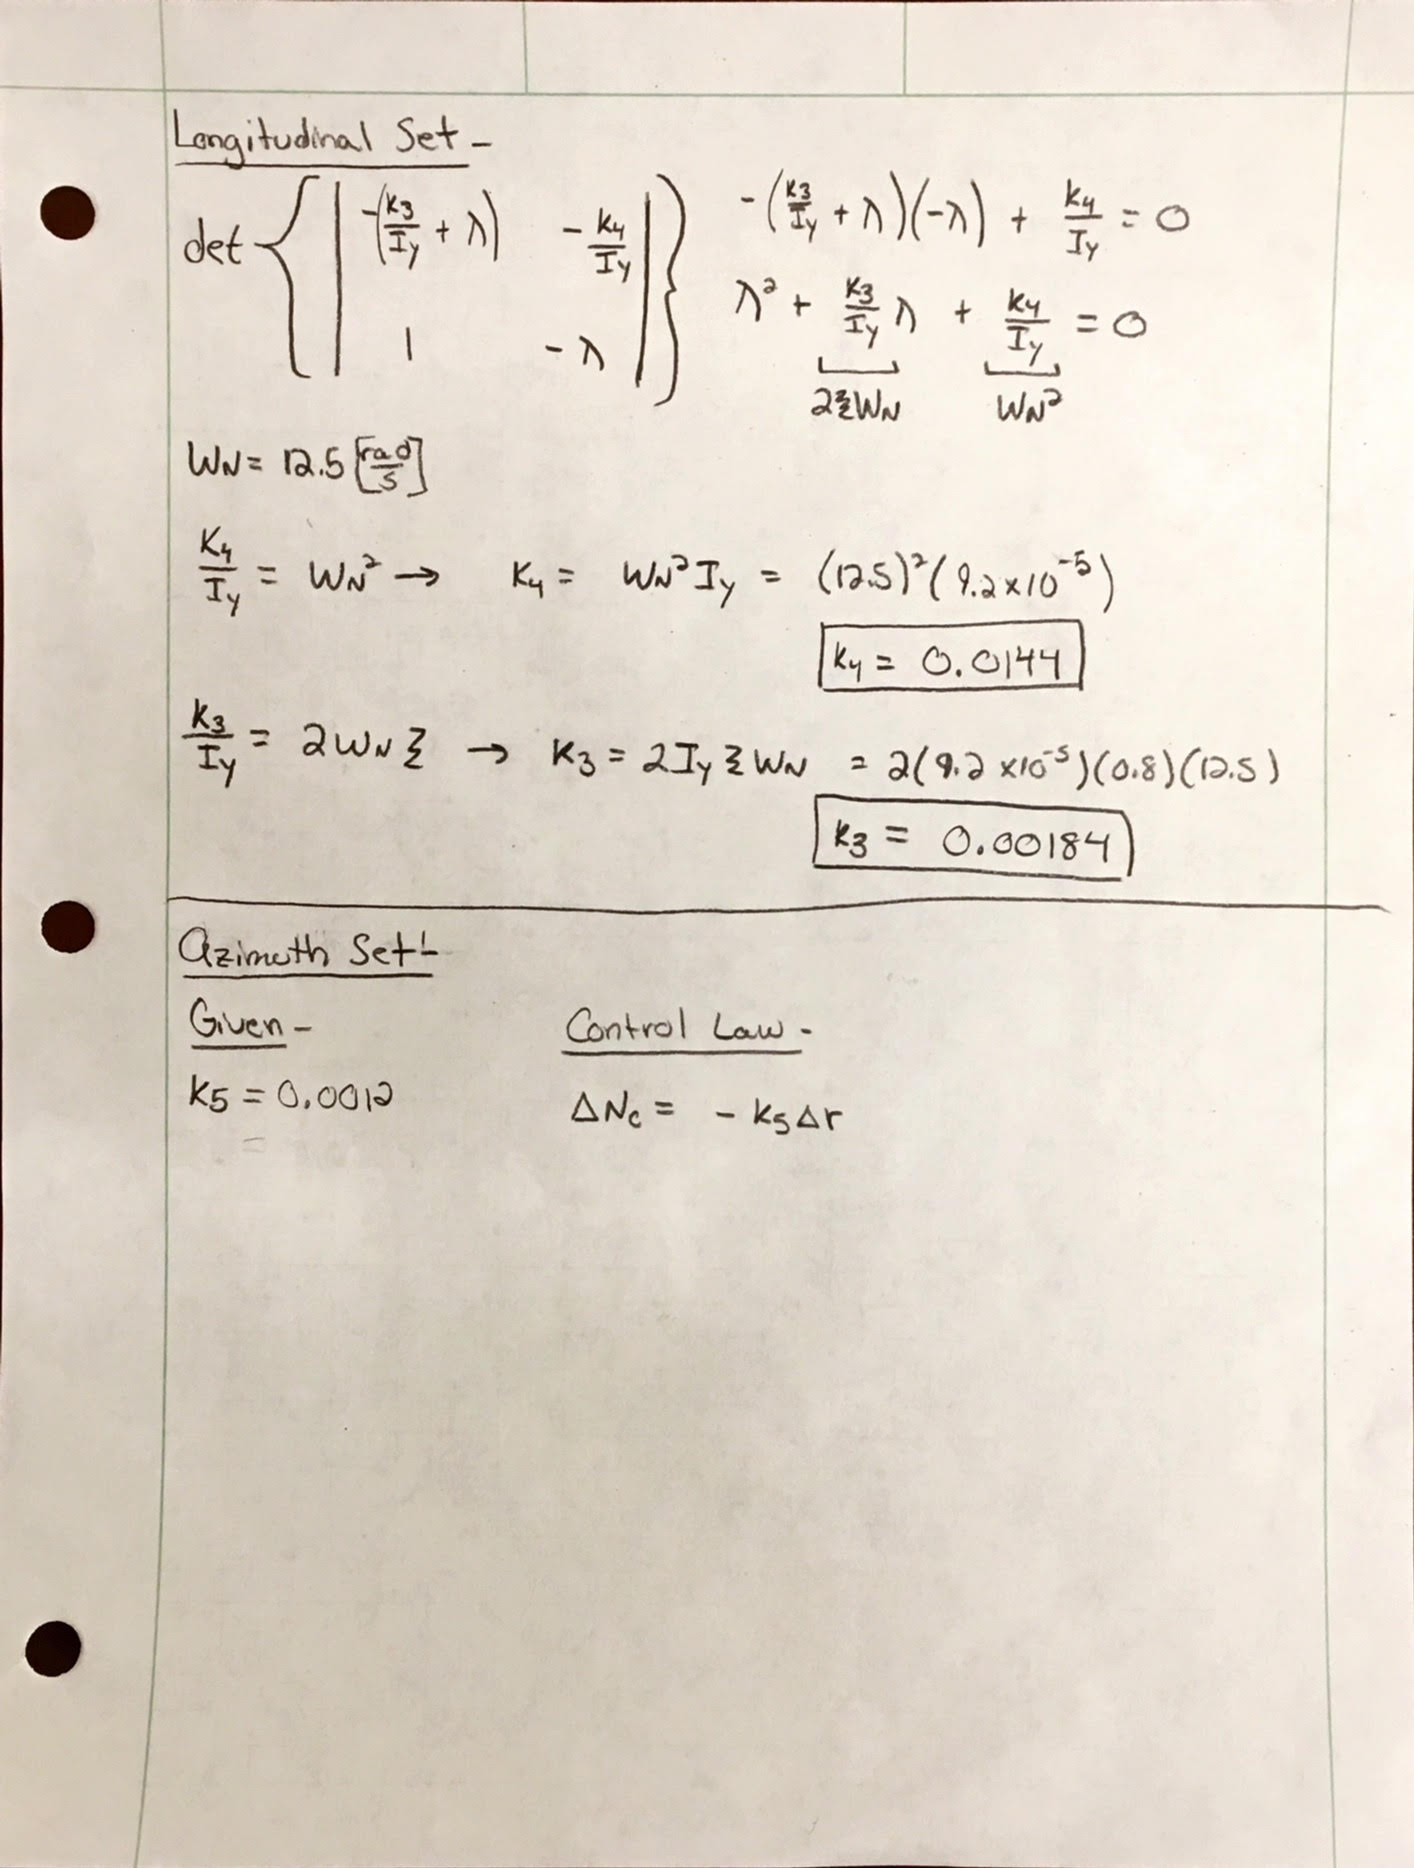 Longitudinal Set -
det { | -(k3/Iy + λ)   -k4/Iy | }   -(k3/Iy + λ)(-λ) + k4/Iy = 0
| 1   -λ |   λ² + k3/Iy λ + k4/Iy = 0
2ξWN   WN²
WN = 12.5 [rad/s]
K4/Iy = WN² → K4 = WN² Iy = (12.5)²(9.2x10⁻⁵)
k4 = 0.0144
k3/Iy = 2WNξ → K3 = 2IyξWN = 2(9.2 x10⁻⁵)(0.8)(12.5)
k3 = 0.00184
Azimuth Set -
Given -   Control Law -
K5 = 0.0012   ΔNc = - k5Δr